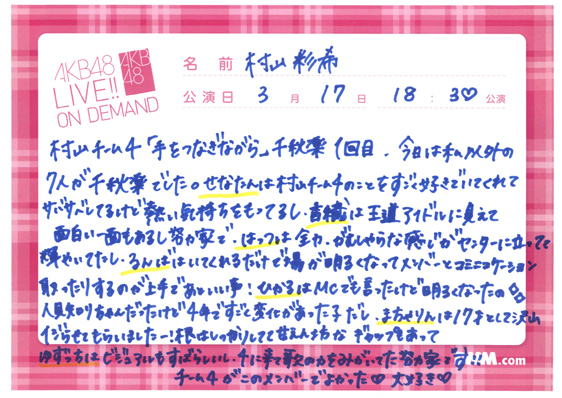 AKB48
LIVE!!
ON DEMAND
AKB
48
名前 村山彩希
公演日 3月17日 18:30公演
村山チーム4「手をつなぎながら」千秋楽1回目、今日は私以外の
7人が千秋楽でした。せなたんは村山チーム4のことをすごく好きでいてくれて
サバサバしてるけど熱い気持ちをもってるし、吉橋は王道アイドルに見えて
面白い一面もあるし努力家で、はっつは全力、がむしゃらな感じがセンターに立ってて
輝やいてたし、るんははいてくれるだけで場が明るくなってメンバーとコミニュケーション
取ったりするのが上手であといい事！ひかるはMCでも言ったけど明るくなったの
人見知りちゃんだたけど4年ですごく変化があった子だし、まちゃりんは17才として沢山
イジらせてもらいましたー！根はしっかりしてて甘えん坊な ギャップもあって
ゆずっちはビジュアルもすばらしいし、4に来て歌の力をみがいてた努力家です!!
.com
チーム4がこのメンバーでよかった♡ 大好き♡